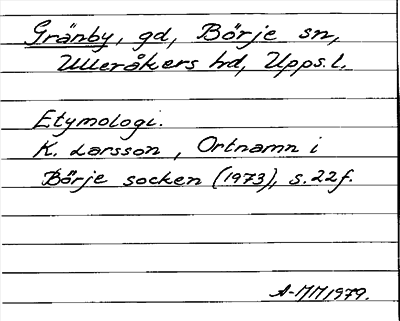 Gränby, gd, Börje sn,
Ulleråkers hd, Upps.l.
Etymologi.
K. Larsson, Ortnamn i
Börje socken (1973), s. 22f.
1979.